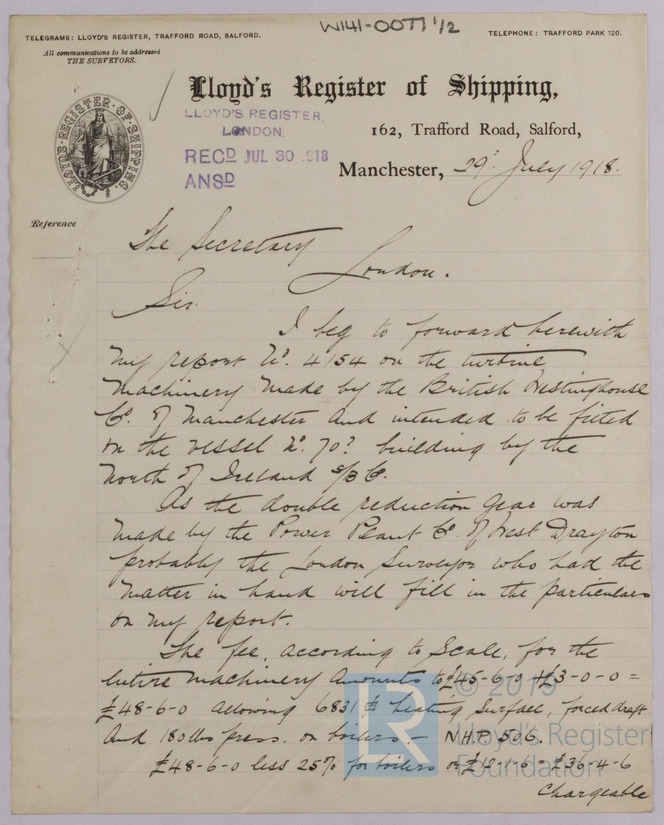 W141-0077 1/2
TELEGRAMS: LLOYD'S REGISTER, TRAFFORD ROAD, SALFORD.
TELEPHONE: TRAFFORD PARK 120.
All communications to be addressed
THE SURVEYORS.
Lloyd's Register of Shipping,
LLOYD'S REGISTER OF SHIPPING
LLOYD'S REGISTER,
LONDON.
162, Trafford Road, Salford,
RECD JUL 30 1918
ANSD
Manchester, 29: July 1918.
Reference
The Secretary
London.
Sir.
I beg to forward herewith
my report No. 4154 on the turbine
machinery made by the British Westinghouse
Co. of Manchester and intended to be fitted
on the vessel No. 70? building by the
North of Ireland S/B Co.
As the double reduction gear was
made by the Power Plant Co. of West Drayton
probably the London Surveyor who had the
matter in hand will fill in the particulars
on my report.
The fee, according to Scale, for the
entire machinery amounts to £45-6-0 + £3-0-0 =
£48-6-0 allowing 6831 heating surface, forced draft
and 180 lbs press. on boilers - NHP 506.
£48-6-0 less 25% for boilers or £12-1-6 = £36-4-6
chargeable
© 2019
LR
Lloyd's Register
Foundation